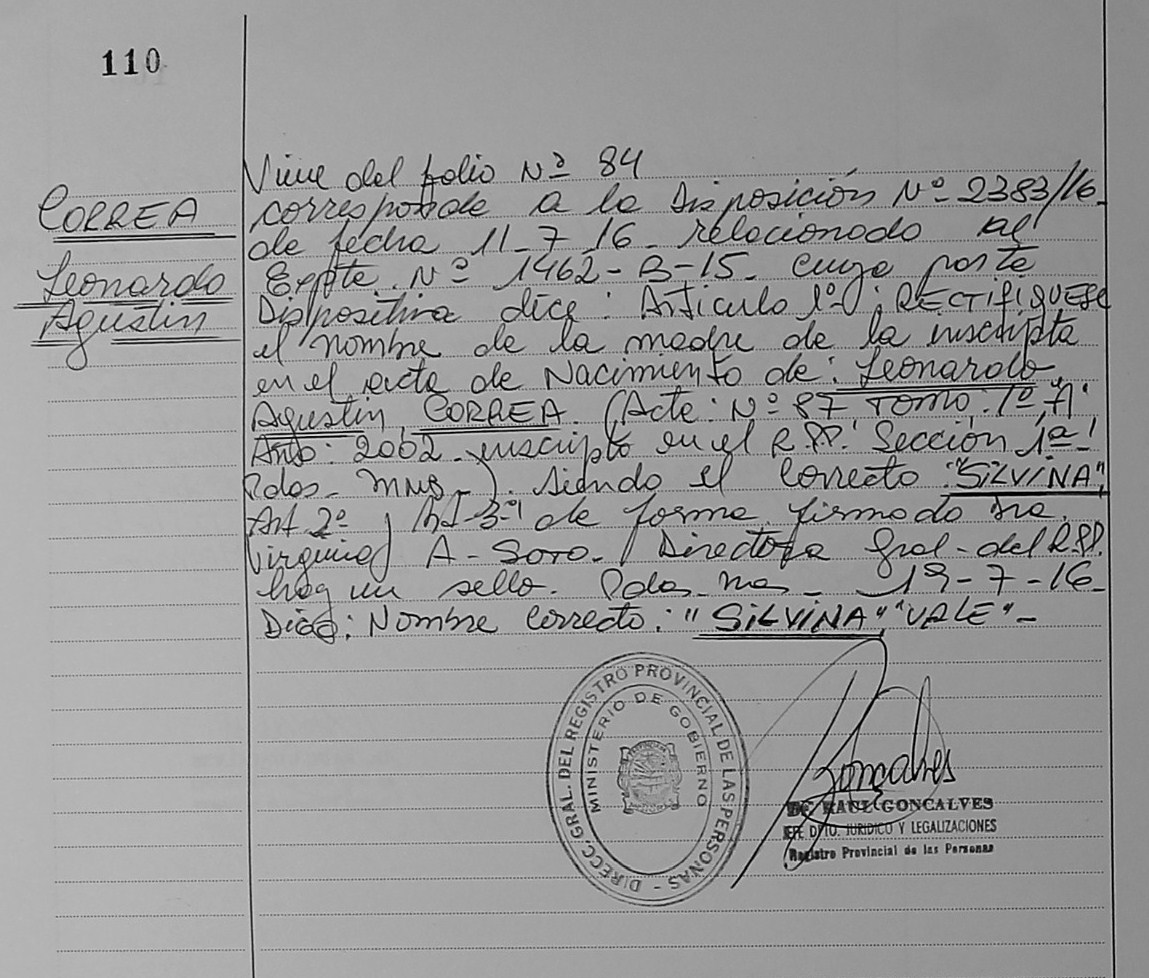 110
CORREA
Leonardo
Agustin
Viene del folio Nº 84
corresponde a la Disposición Nº 2383/16-
de fecha 11-7-16- relacionado al
Expte. Nº 1462-B-15. cuya parte
Dispositiva dice: Articulo 1º: RECTIFIQUESE
el nombre de la madre de la inscripta
en el acta de Nacimiento de: Leonardo
Agustin CORREA (Acta: Nº 87 Tomo: 1º "A"
Año: 2002 inscripto en el R.P.P. Sección 1ª
Pdas- Mnes-). siendo el correcto "SILVINA"
Art. 2º Art-3º de forma firmado Sra.
Virginia A- Soto- Directora Gral-del R.P.P.
hay un sello. Pdas. Mes- 19-7-16-
Digo: Nombre correcto: "SILVINA" "VALE"-
DIRECC. GRAL. DEL REGISTRO PROVINCIAL DE LAS PERSONAS -
MINISTERIO DE GOBIERNO
Goncalves
RAUL GONCALVES
JEFE DPTO. JURIDICO Y LEGALIZACIONES
Registro Provincial de las Personas